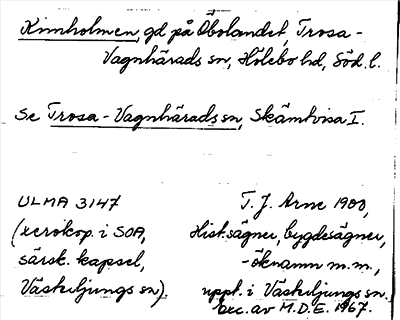 Kinnholmen, gd på Öbolandet, Trosa-
Vagnhärads sn, Hölebo hd, Söd. l.
Se Trosa-Vagnhärads sn, Skämtvisa I.
ULMA 3147
(xerokop. i SOA,
särsk. kapsel,
Västerljungs sn).
T. J. Arne 1900,
Hist. sägner, bygdesägner,
-öknamn m.m.,
uppt. i Västerljungs sn.
exc. av M.D.E. 1967.